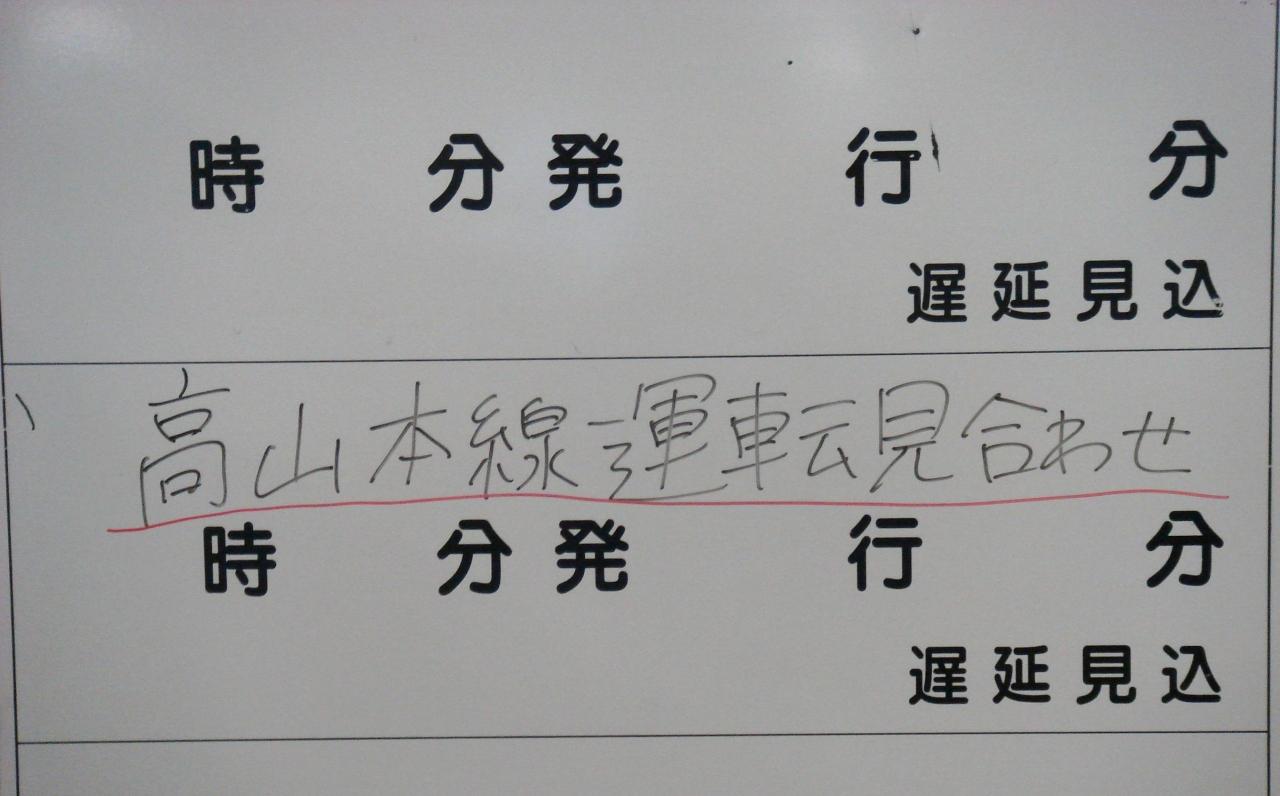 時 分発 行 分
遅延見込
高山本線運転見合わせ
時 分発 行 分
遅延見込